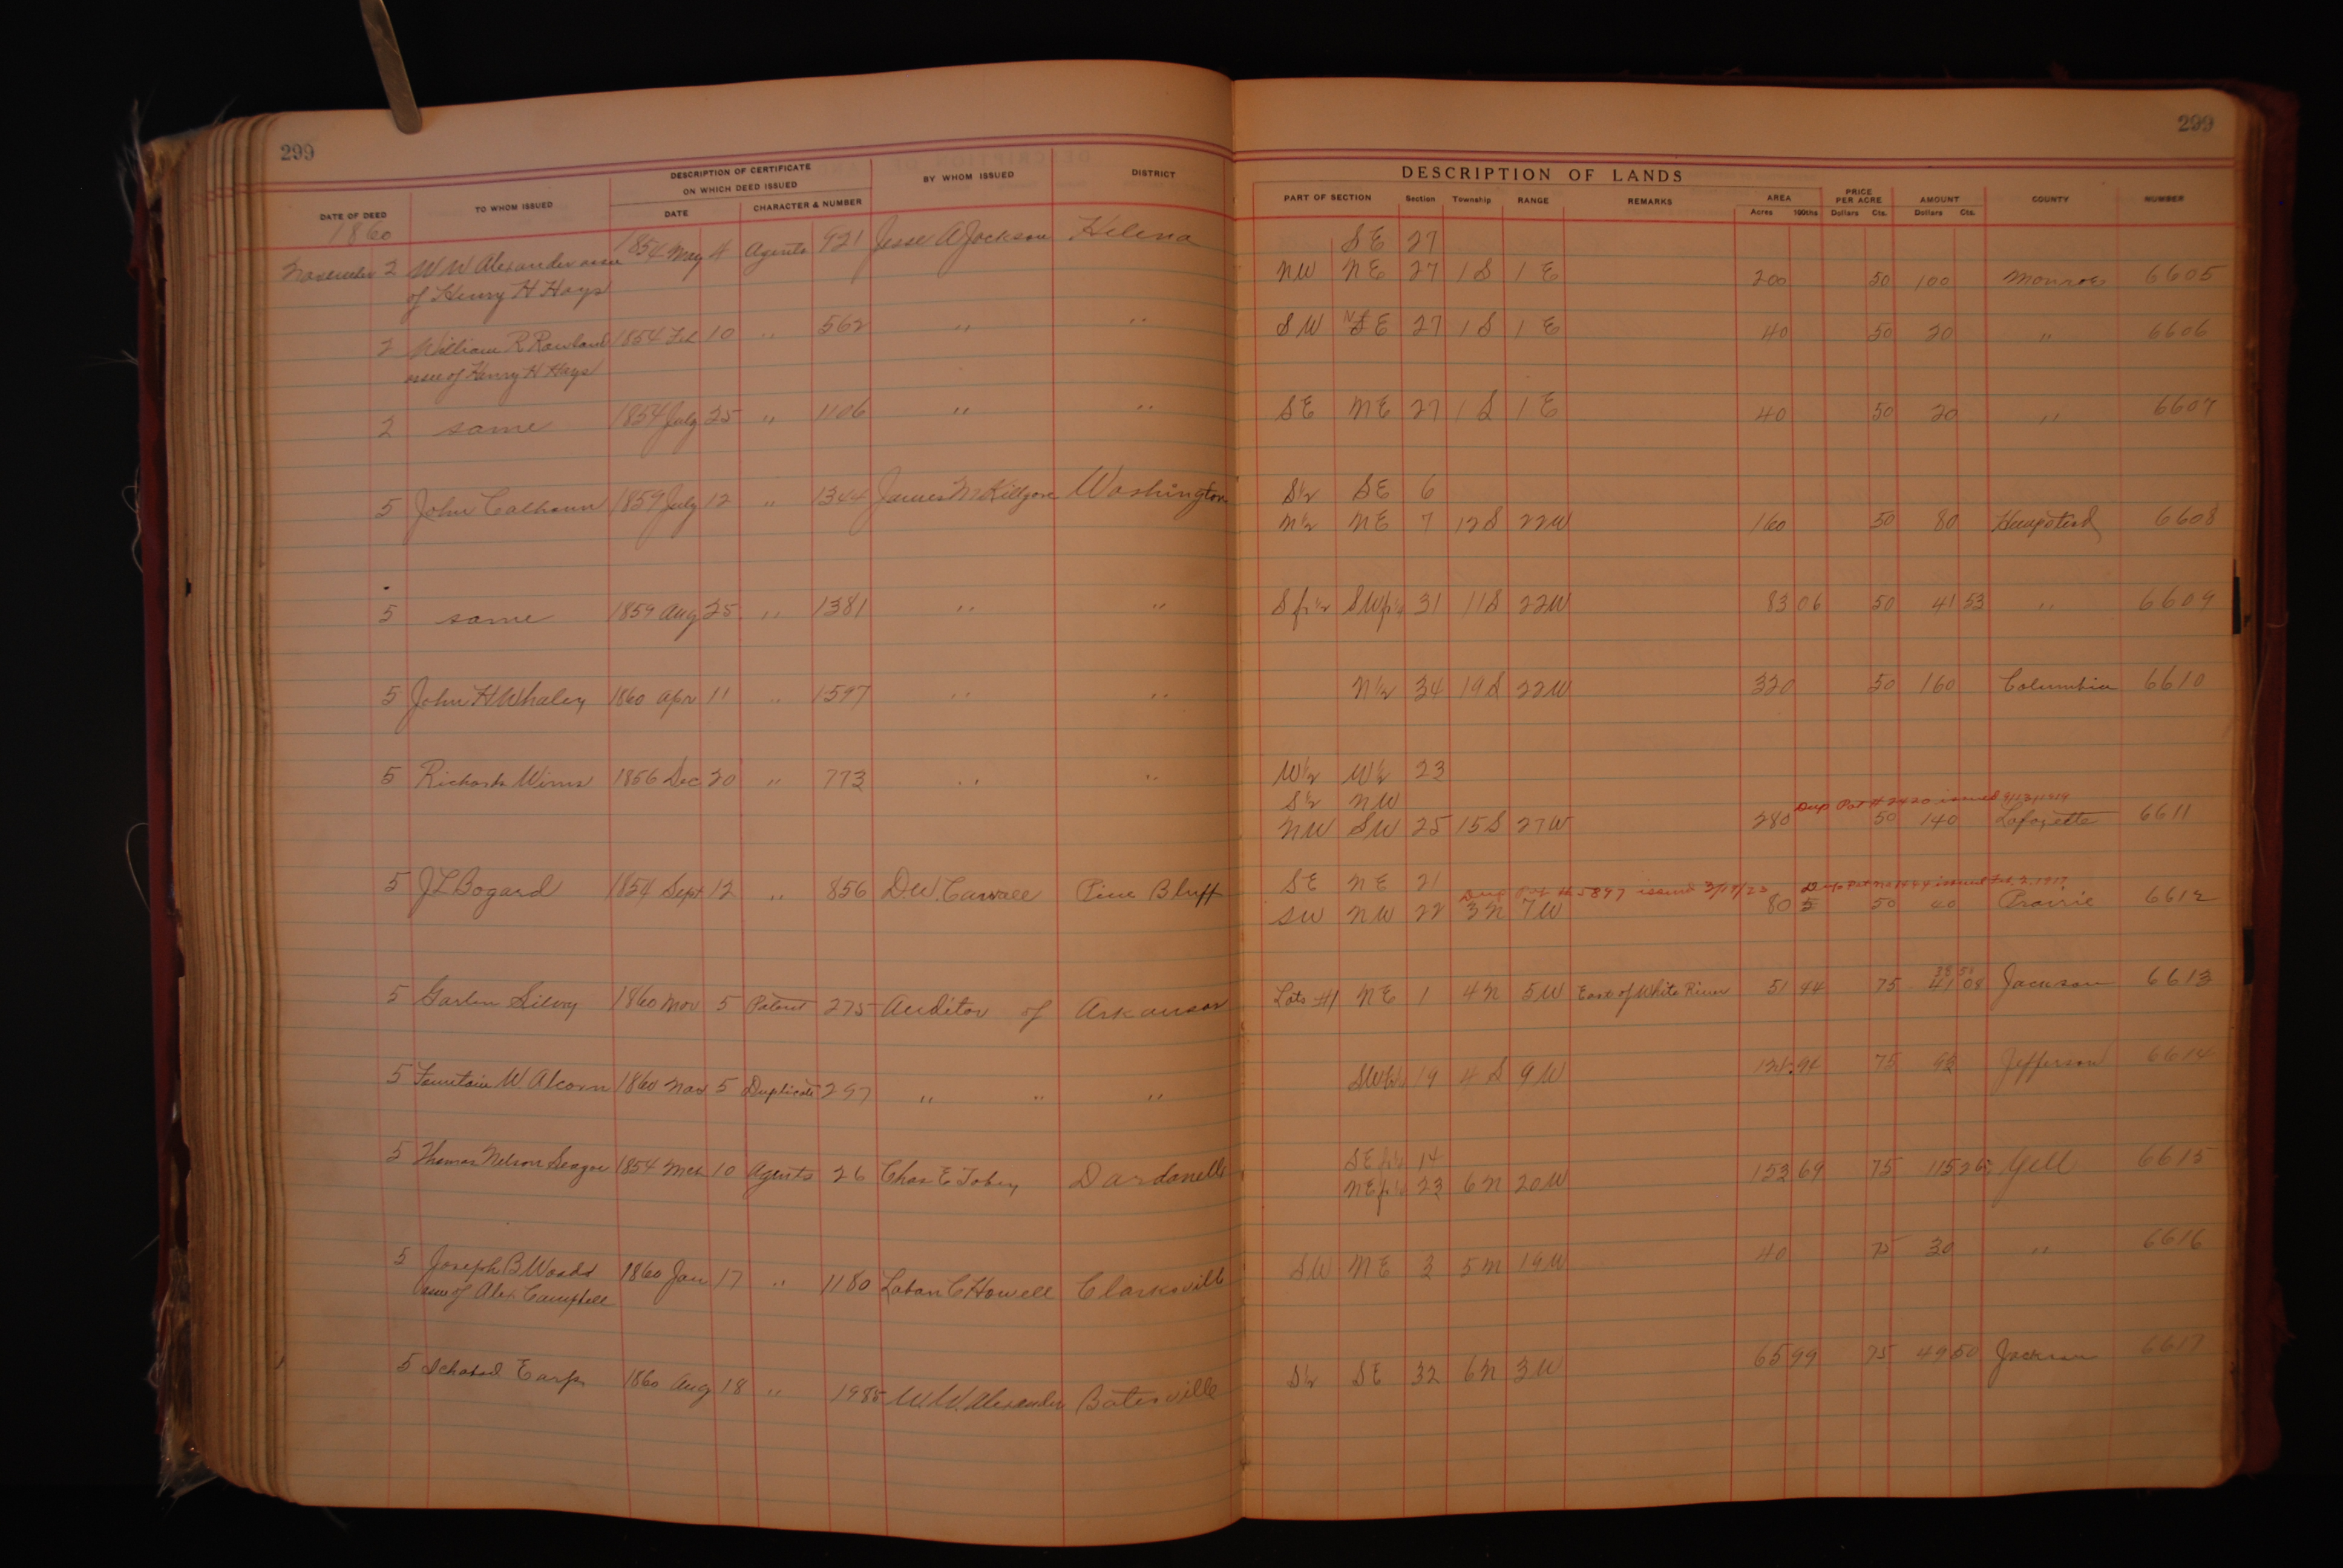 299
299
DESCRIPTION OF CERTIFICATE
ON WHICH DEED ISSUED
BY WHOM ISSUED
DISTRICT
DATE OF DEED
TO WHOM ISSUED
DATE
CHARACTER & NUMBER
DESCRIPTION OF LANDS
PART OF SECTION
Section
Township
RANGE
REMARKS
AREA
Acres 100ths
PRICE
PER ACRE
Dollars Cts.
AMOUNT
Dollars Cts.
COUNTY
NUMBER
1860
November 2 W W Alexander assee 1854 May 4 Agents 921 Jesse A Jackson Helena SE 27
of Henry H Hays NW NE 27 1 S 1 E 200 50 100 Monroe 6605
2 William R Rowland 1854 Feb 10 " 562 " " SW SE 27 1 S 1 E 40 50 20 " 6606
assee of Henry H Hays
2 same 1854 July 25 " 1106 " " SE NE 27 1 S 1 E 40 50 20 " 6607
5 John Calhoun 1859 July 12 " 1344 James M Killgore Washington S½ SE 6
N½ NE 7 12 S 22 W 160 50 80 Hempstead 6608
5 same 1859 Aug 25 " 1381 " " S fr ½ SW fr ¼ 31 11 S 22 W 83 06 50 41 53 " 6609
5 John H Whaley 1860 Apr 11 " 1597 " " N½ 34 19 S 22 W 320 50 160 Columbia 6610
5 Richards Wims 1856 Dec 20 " 773 " " W½ W½ 23
S½ NW
Dup Pat # 2420 issued
NW SW 25 15 S 27 W 280 50 140 Lafayette 6611
5 J L Bogard 1854 Sept 12 " 856 D.W. Carroll Pine Bluff SE NE 21
Dup Pat # 5897 issued 3/19/23
SW NW 22 3 N 7 W 80 50 40 Prairie 6612
5 Garlen Silvey 1860 Nov 5 Patent 275 Auditor of Arkansas Lots #1 NE 1 4 N 5 W East of White River 51 44 75 41 08 Jackson 6613
5 Fountain W. Alcorn 1860 Nov 5 Duplicate 297 " " " 19 4 S 9 W 75 Jefferson 6614
5 Thomas Nelson 1854 Mch 10 Agents 26 Chas E Tobey Dardanelle SE fr ¼ 14
NE fr ¼ 23 6 N 20 W 153 69 75 115 26 Yell 6615
5 Joseph B Woods 1860 Jan 17 " 1180 Laban C Howell Clarksville SW NE 3 5 N 19 W 40 75 30 " 6616
assee of Alex Campbell
5 Ichabod Earp 1860 Aug 18 " 1985 W.W. Alexander Batesville S½ SE 32 6 N 3 W 65 99 75 49 50 Jackson 6617